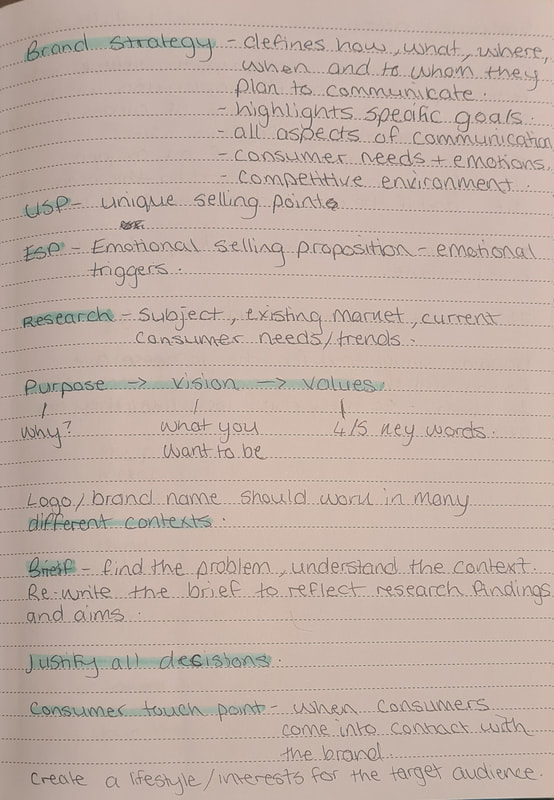 Brand strategy - defines how, what, where,
when and to whom they
plan to communicate.
- highlights specific goals.
- all aspects of communication
- consumer needs + emotions.
- competitive environment.
USP - unique selling points
ESP - Emotional selling proposition - emotional
triggers.
Research - subject, existing market, current
consumer needs/trends.
Purpose -> vision -> values.
why? what you 4/5 key words.
want to be
Logo/brand name should work in many
different contexts.
Brief - find the problem, understand the context.
Re-write the brief to reflect research findings
and aims.
Justify all decisions.
Consumer touch point - when consumers
come into contact with
the brand.
Create a lifestyle/interests for the target audience.